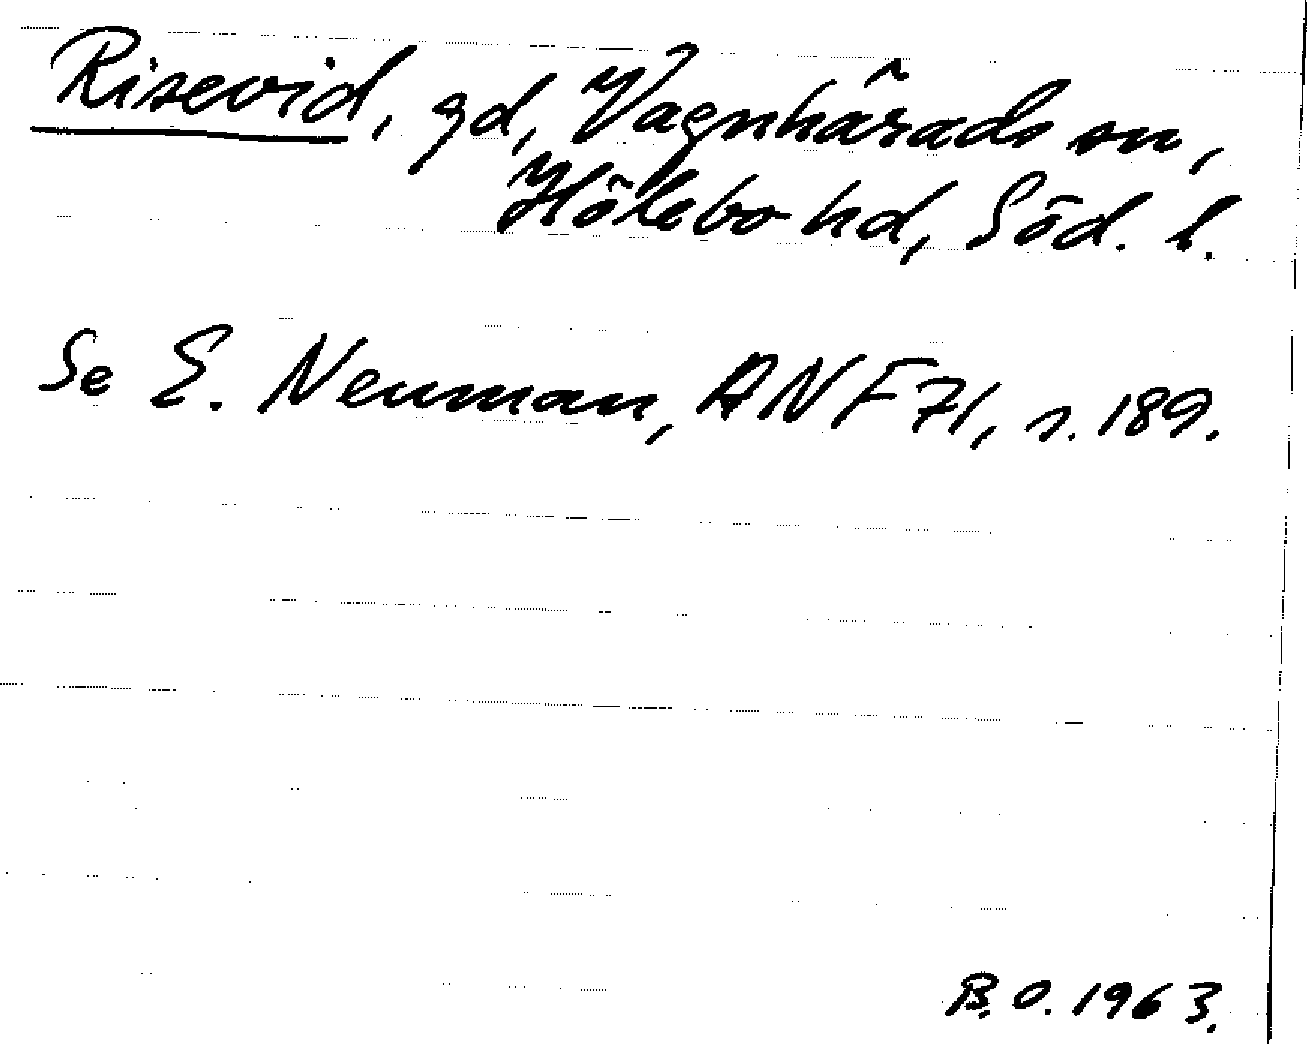 Risevid, gd, Vagnhärads sn,
Hölebo hd, Söd. l.
Se E. Neuman, ANF 71, s. 189.
B.O. 1963.